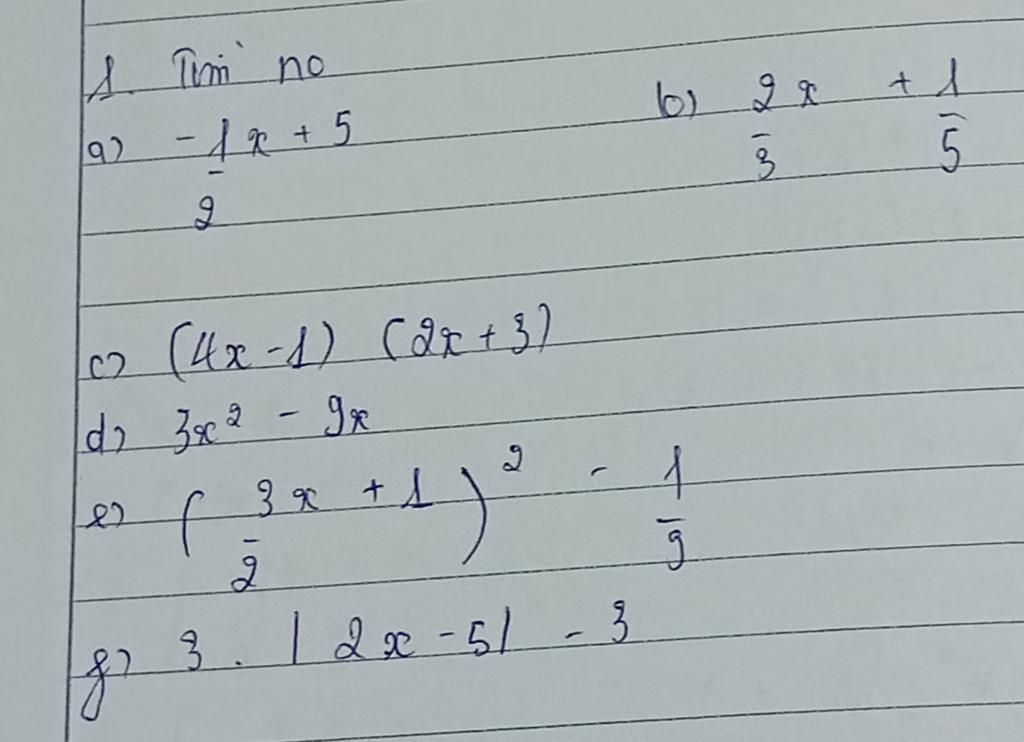 1. Tìm no
a) -1/2 x + 5 b) 2/3 x + 1/5
c) (4x - 1) (2x + 3)
d) 3x² - 9x
e) (3/2 x + 1)² - 1/9
g) 3 . |2x - 5| - 3